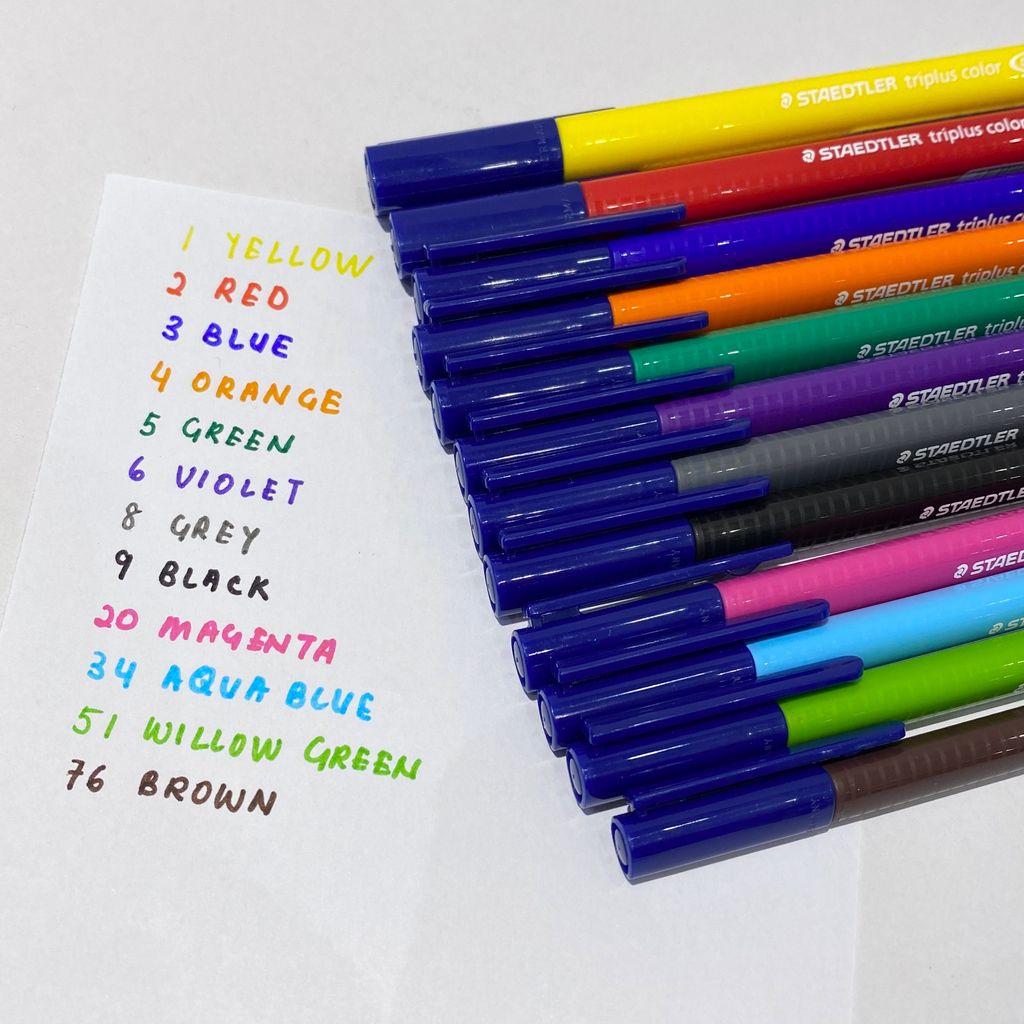 1 YELLOW
2 RED
3 BLUE
4 ORANGE
5 GREEN
6 VIOLET
8 GREY
9 BLACK
20 MAGENTA
34 AQUA BLUE
51 WILLOW GREEN
76 BROWN
STAEDTLER triplus color
STAEDTLER triplus color
STAEDTLER triplus
STAEDTLER triplus
STAEDTLER
STAEDTLER
STAEDTLER
STAEDTLER